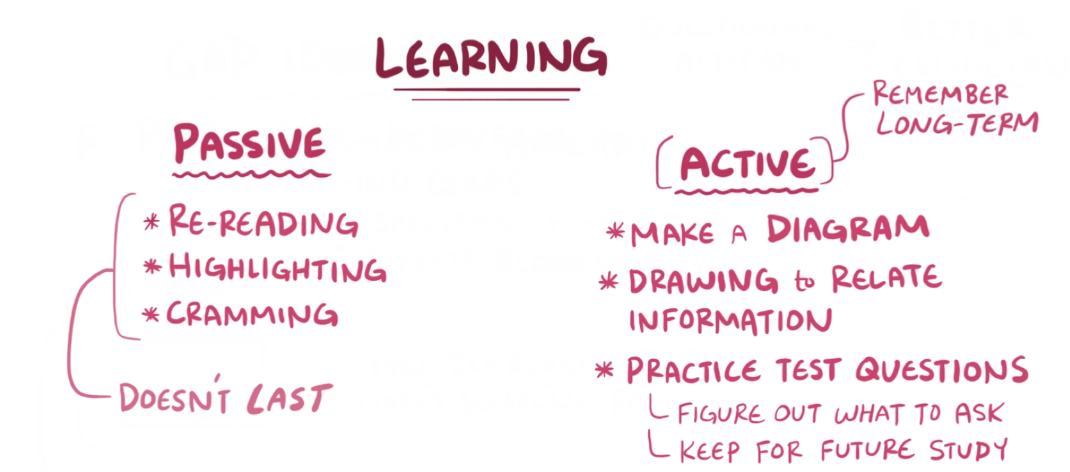 LEARNING
PASSIVE
* RE-READING
* HIGHLIGHTING
* CRAMMING
DOESN'T LAST
REMEMBER
LONG-TERM
ACTIVE
* MAKE A DIAGRAM
* DRAWING to RELATE
INFORMATION
* PRACTICE TEST QUESTIONS
FIGURE OUT WHAT TO ASK
KEEP FOR FUTURE STUDY